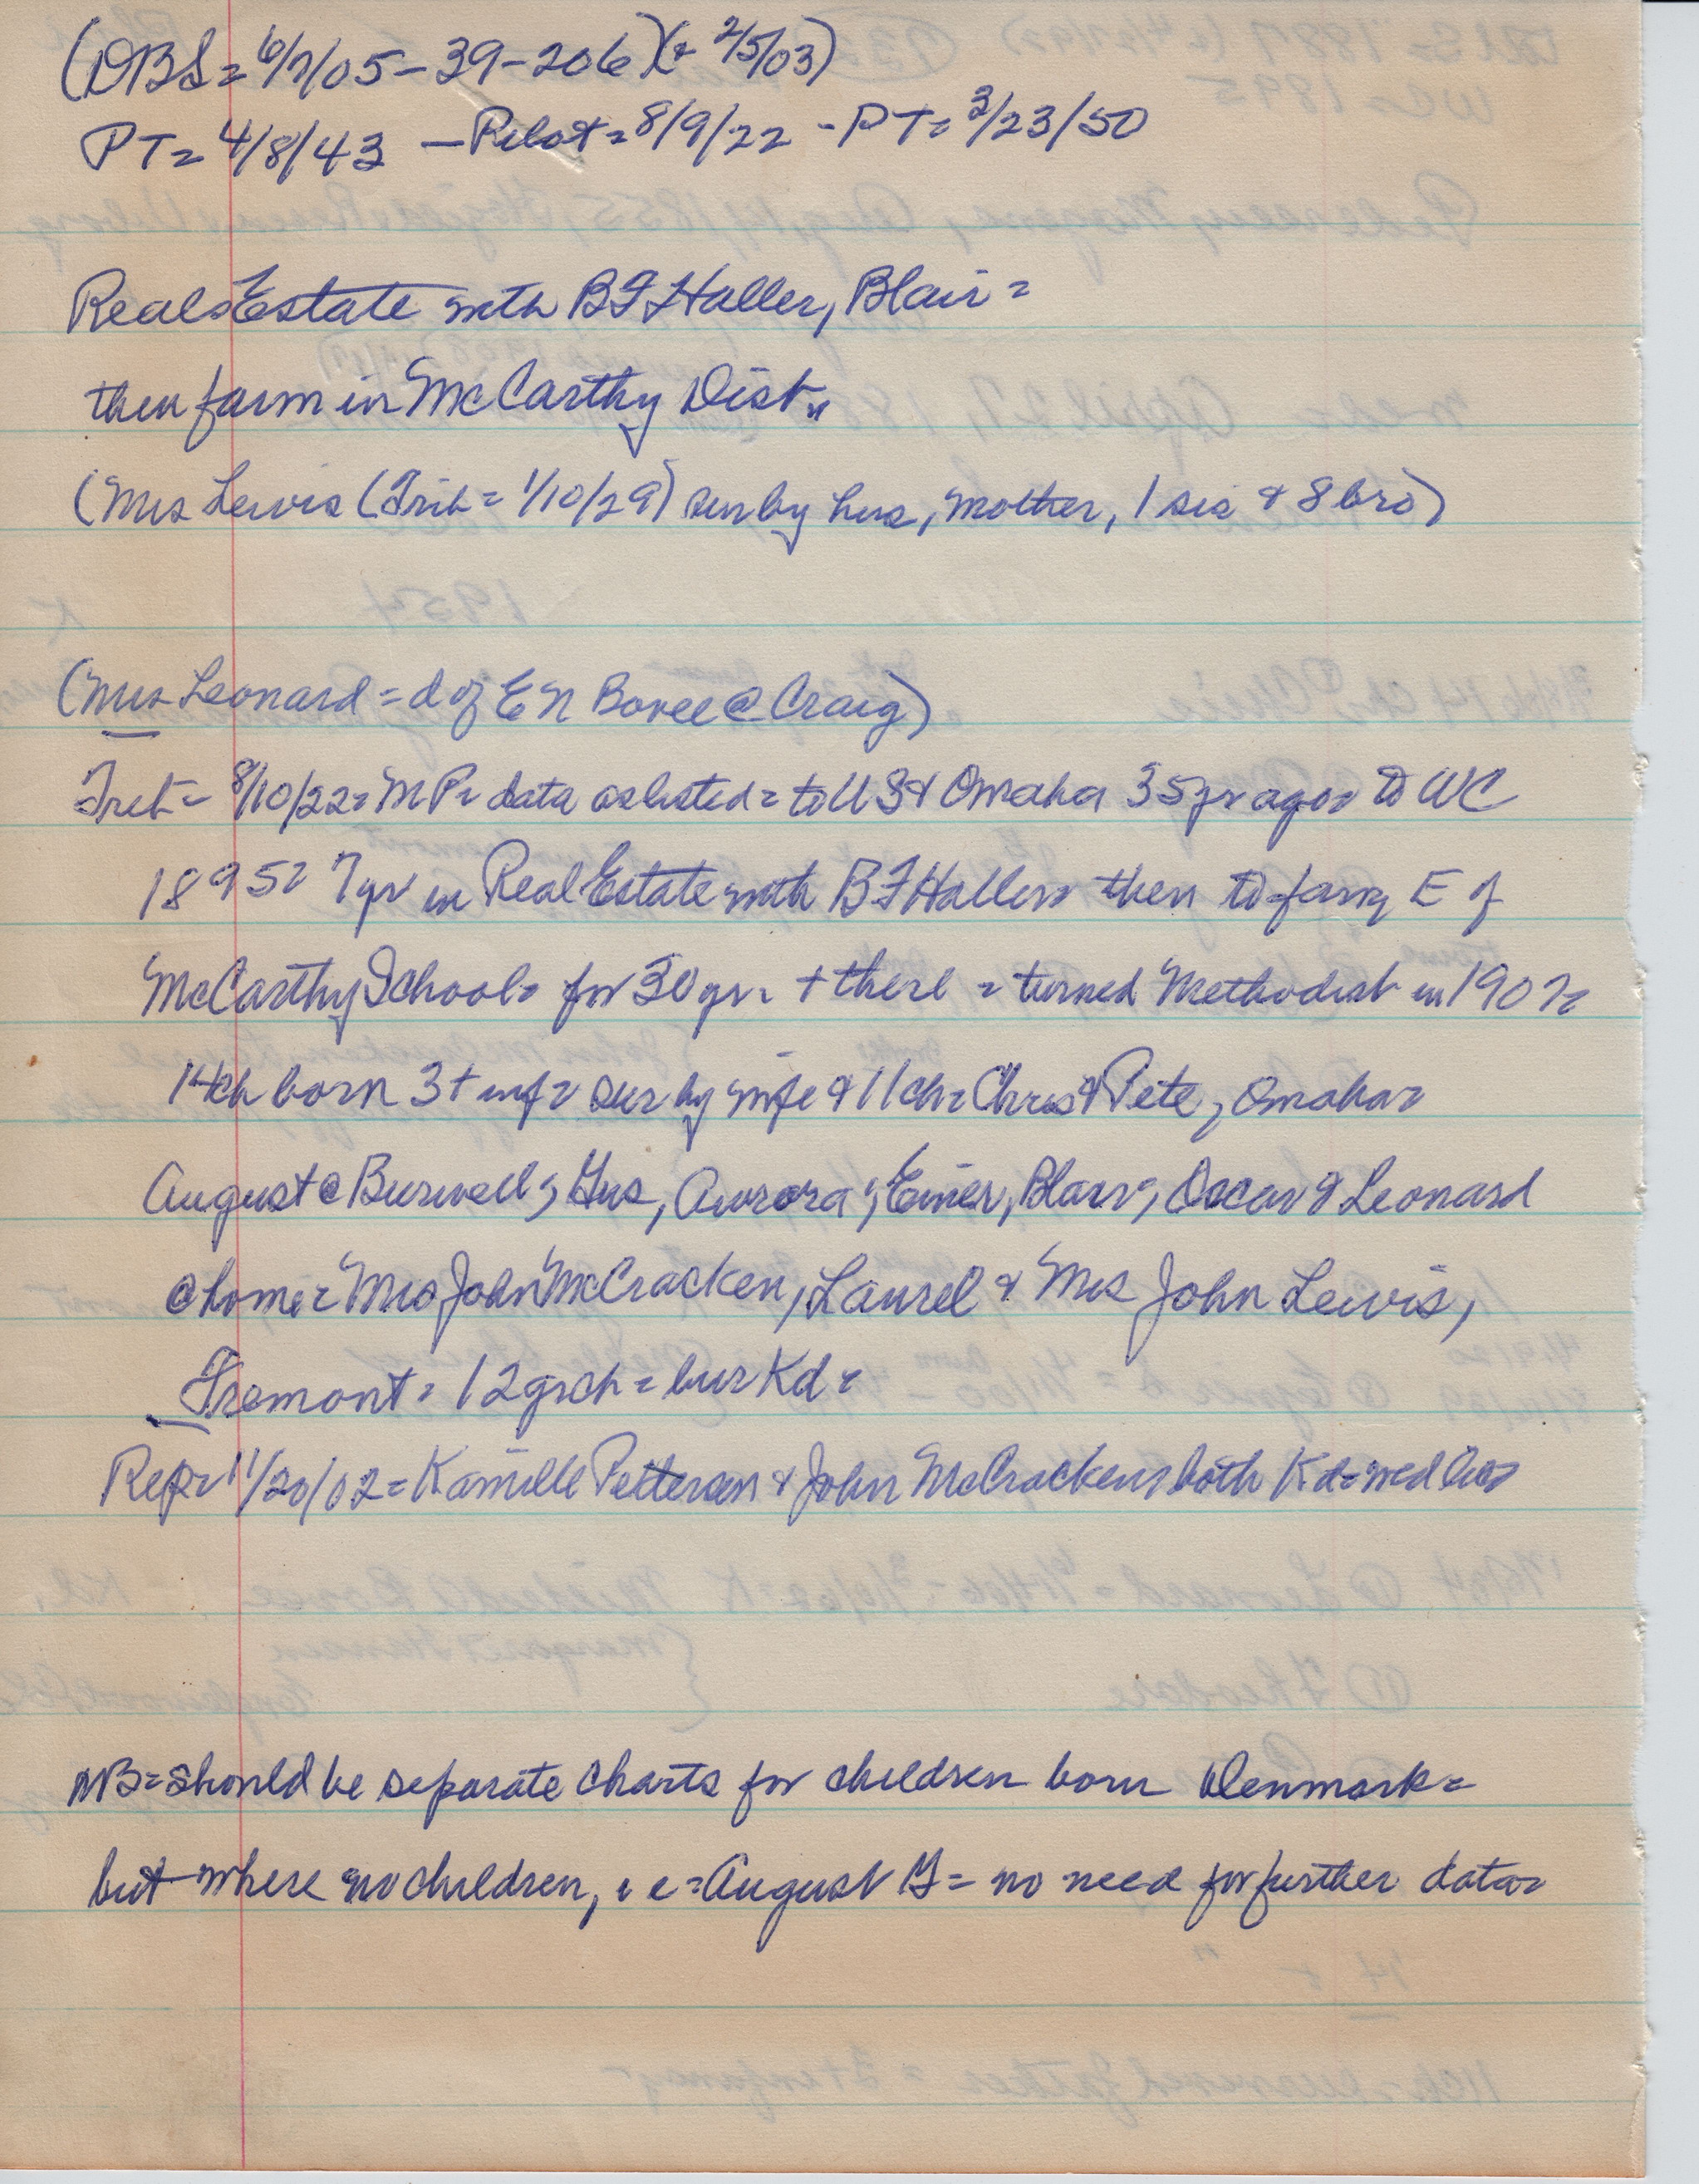 (DBS = 6/7/05 - 39 - 206) (+ 2/5/03)
PT = 4/8/43 - Pilot = 8/9/22 - PT = 3/23/50
Real Estate with B F Haller, Blair =
then farm in McCarthy Dist.
(Mrs Lewis (Trib = 1/10/29) sur by hus, mother, 1 sis & 8 bro)
(Mrs Leonard = d of E N Bovee @ Craig)
Trib = 8/10/22 = M P = data as listed = to US & Omaha 35 yr ago = to WC
1895 = 7 yr in Real Estate with B F Haller = then to farm E of
McCarthy School = for 30 yr = + there = turned Methodist in 1907 =
14 ch born 3 + inf = sur by wife & 11 ch = Chris & Pete, Omaha =
August @ Burwell; Gus, Aurora; Einer, Blair; Oscar & Leonard
@ home = Mrs John McCracken, Laurel & Mrs John Lewis,
Fremont = 12 grch = bur Kd =
Rep = 11/20/02 = Kamille Petersen & John McCracken, both Kd = wed lic =
NB = should be separate charts for children born Denmark =
but where no children, i e = August G = no need for further data =